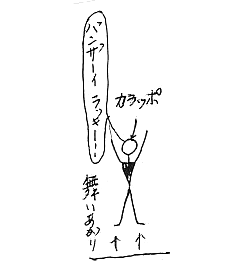 バンザーイ ラッキー…
カラッポ
舞いあがり